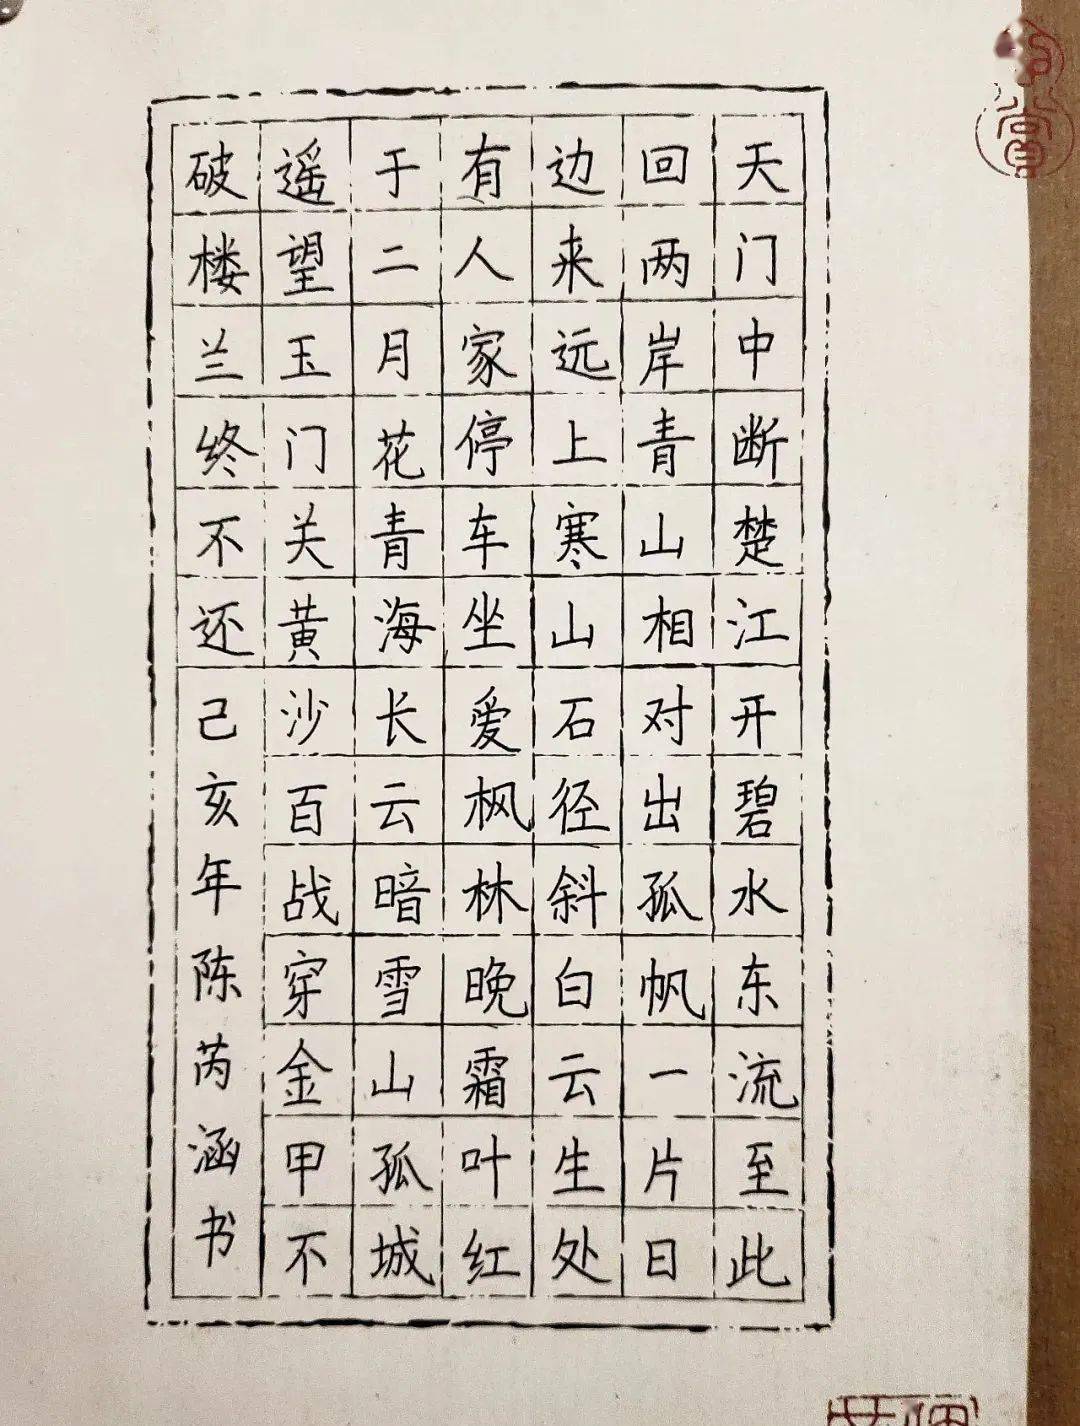 天门中断楚江开碧水东流至此
回两岸青山相对出孤帆一片日
边来远上寒山石径斜白云生处
有人家停车坐爱枫林晚霜叶红
于二月花青海长云暗雪山孤城
遥望玉门关黄沙百战穿金甲不
破楼兰终不还己亥年陈芮涵书